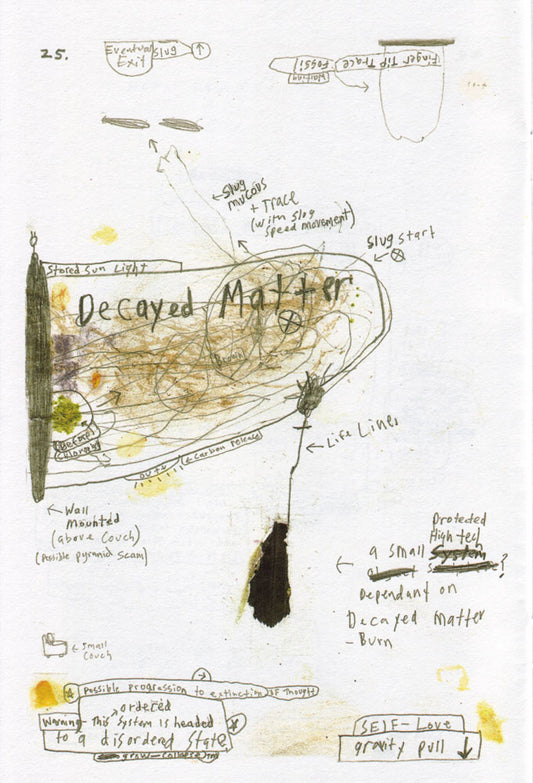 25.
Eventual
Exit
Slug
Finger Tip Trace
Fossil
Waiting
Slug
mucous
+ Trace
(with slug
speed movement)
Slug start
Stored Sun Light
Decayed Matter
Begin
Before
out
carbon release
Life Lines
Wall
Mounted
(above couch)
(Possible pyramid scam)
Protected
High tech
a small System
?
Dependant on
Decayed Matter
- Burn
small
couch
Possible progression to extinction of Thought
ordered
Warning - This system is headed
to a disordered state
grow-collapse
SElF-Love
gravity pull